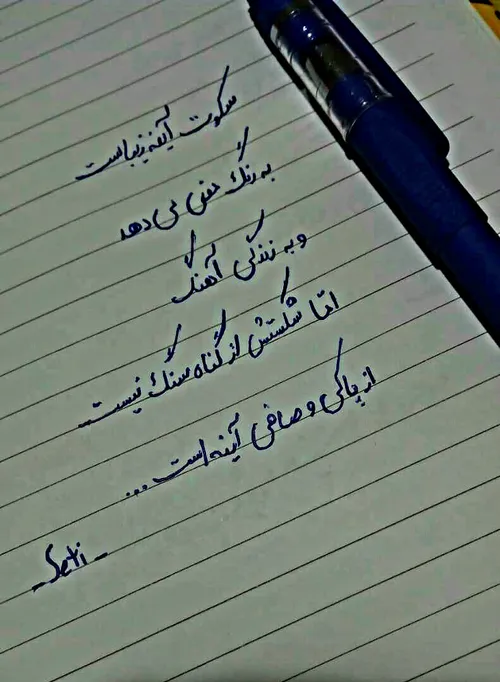 سکوت آینه زیباست
به رنگ معنی می دهد
و به زندگی آهنگ
امّا شکستش از گناه سنگ نیست
از پاکی و صافی آینه است ...
- Seti -